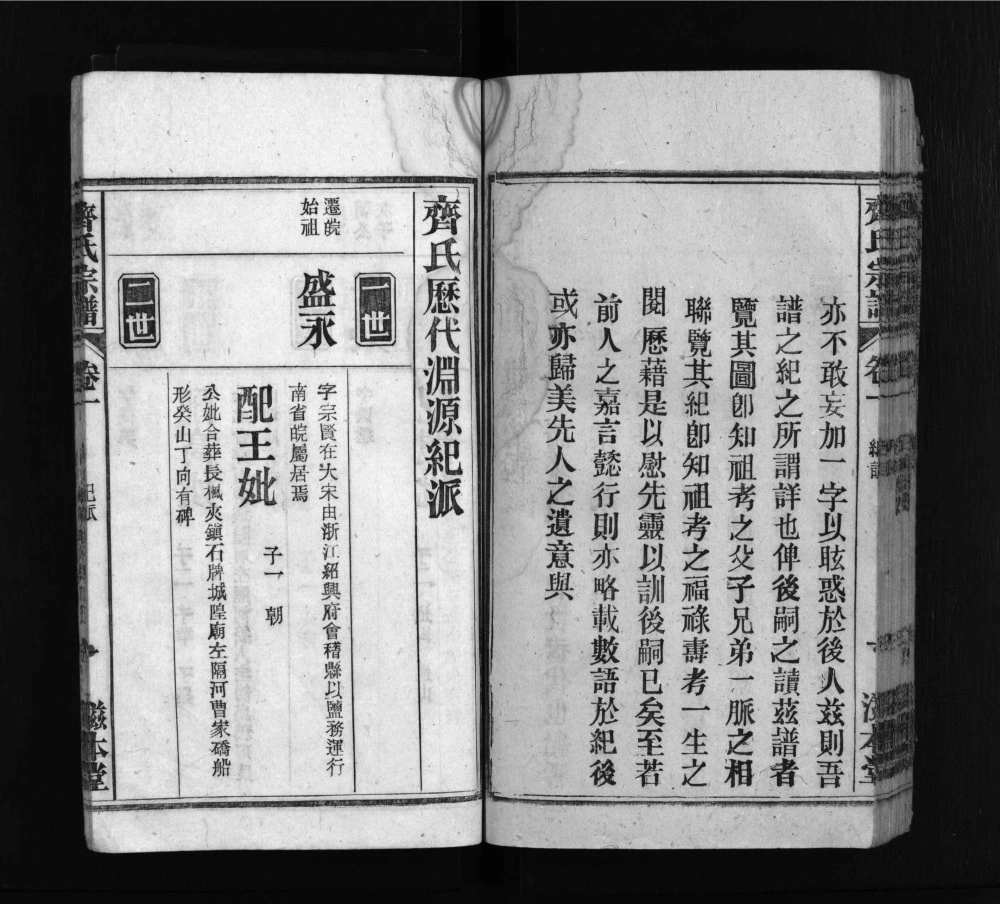 齊氏宗譜
卷一
亦不敢妄加一字以眩惑於後人兹則吾
譜之紀之所謂詳也俾後嗣之讀兹譜者
覽其圖卽知祖考之父子兄弟一脈之相
聯覽其紀卽知祖考之福祿壽考一生之
閱歷藉是以慰先靈以訓後嗣已矣至若
前人之嘉言懿行則亦略載數語於紀後
或亦歸美先人之遺意與
齊氏歷代淵源紀派
一世
遷皖
始祖
盛永
字宗賢在大宋由浙江紹興府會稽縣以鹽務運行
南省皖屬居焉
配王妣
子一
朝
公妣合葬長楓夾鎭石牌城隍廟左隔河曹家礄船
形癸山丁向有碑
二世
齊氏宗譜
卷一
紀派
一
滋本堂